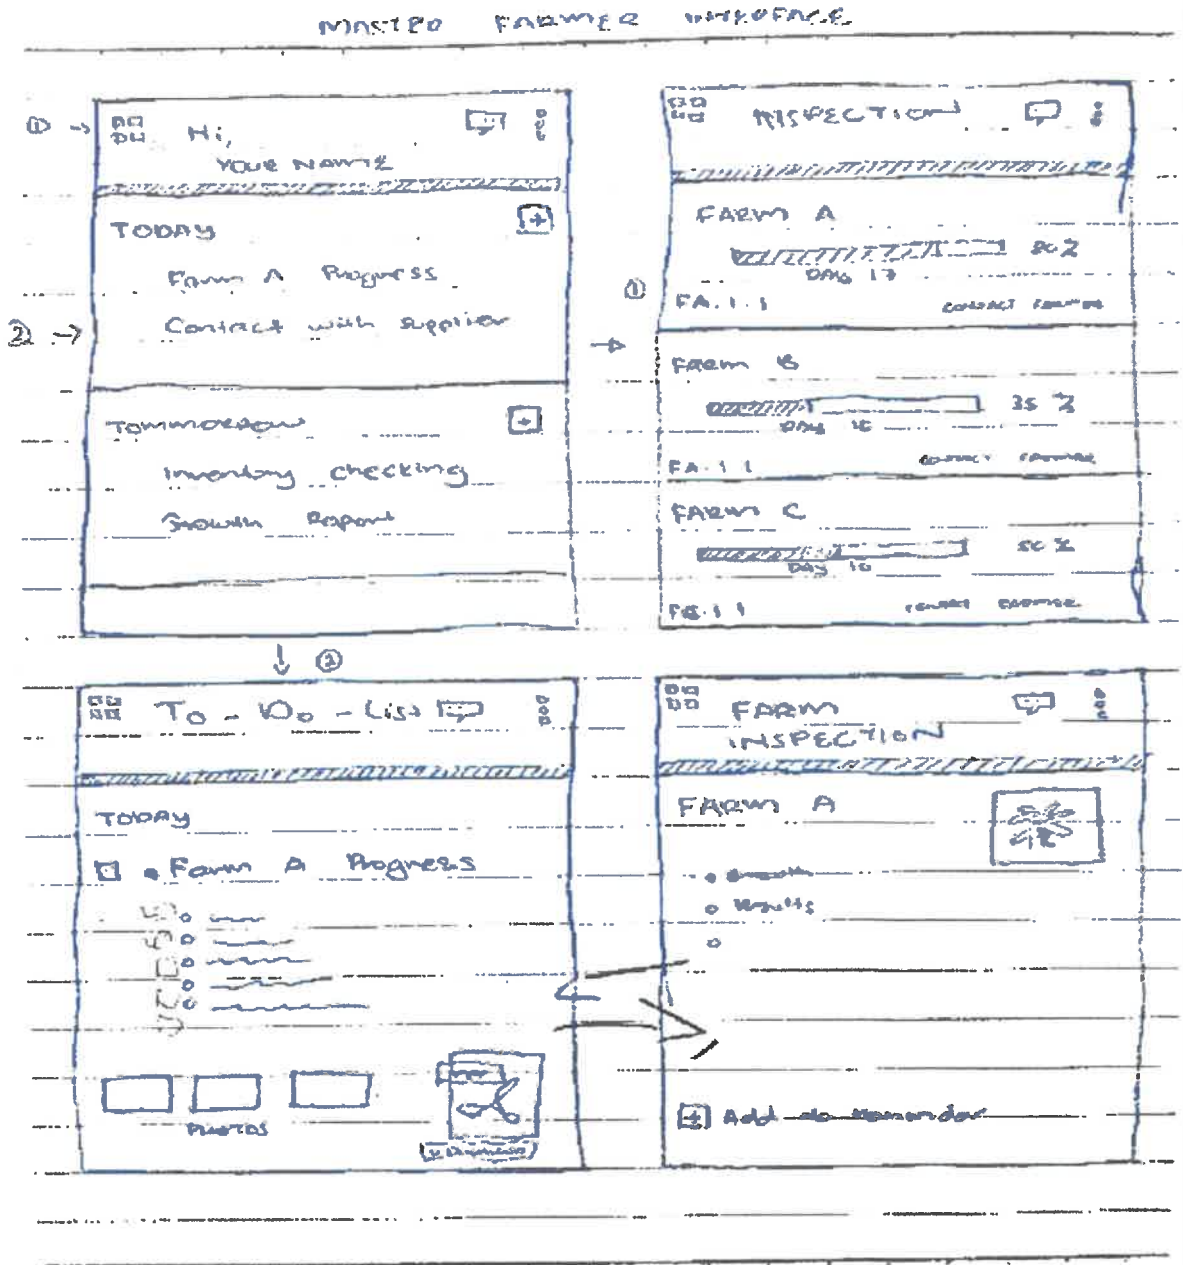 MASTER FARMER INTERFACE
① →
Hi,
YOUR NAME
② →
TODAY
Farm A Progress
Contact with supplier
TOMMORROW
Inventory checking
Growth Report
→
↓ ②
①
INSPECTION
FARM A
80%
DAY 17
FA.1.1
CONTACT FARMER
FARM B
35 %
DAY 15
FA.1.1
CONTACT FARMER
FARM C
50 %
DAY 10
CONTACT FARMER
To - Do - List
TODAY
Farm A Progress
PHOTOS
FARM
INSPECTION
FARM A
Growth
Results
Add to